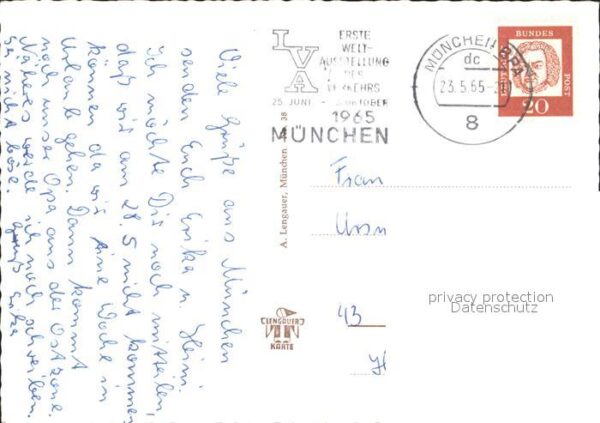 Viele Grüße aus München
senden Euch Erika u. Heini
ich möchte Dir noch mitteilen,
daß wir am 28.5 nicht kommen
können da wir eine Woche in
Urlaub gehen. Dann kommt
noch unser Opa aus der Ostzone.
Näheres werde ich noch schreiben.
Sei nicht böse. Gruß Erika
A. Lengauer, München 38
LVA
ERSTE
WELT-
AUSSTELLUNG
DES
VERKEHRS
25 JUNI - OKTOBER
1965
MÜNCHEN
MÜNCHEN BPA
dc
23.5.65-2
8
BUNDES
POST
20
Frau
Ursu
43
H
LENGAUER
KARTE
privacy protection
Datenschutz